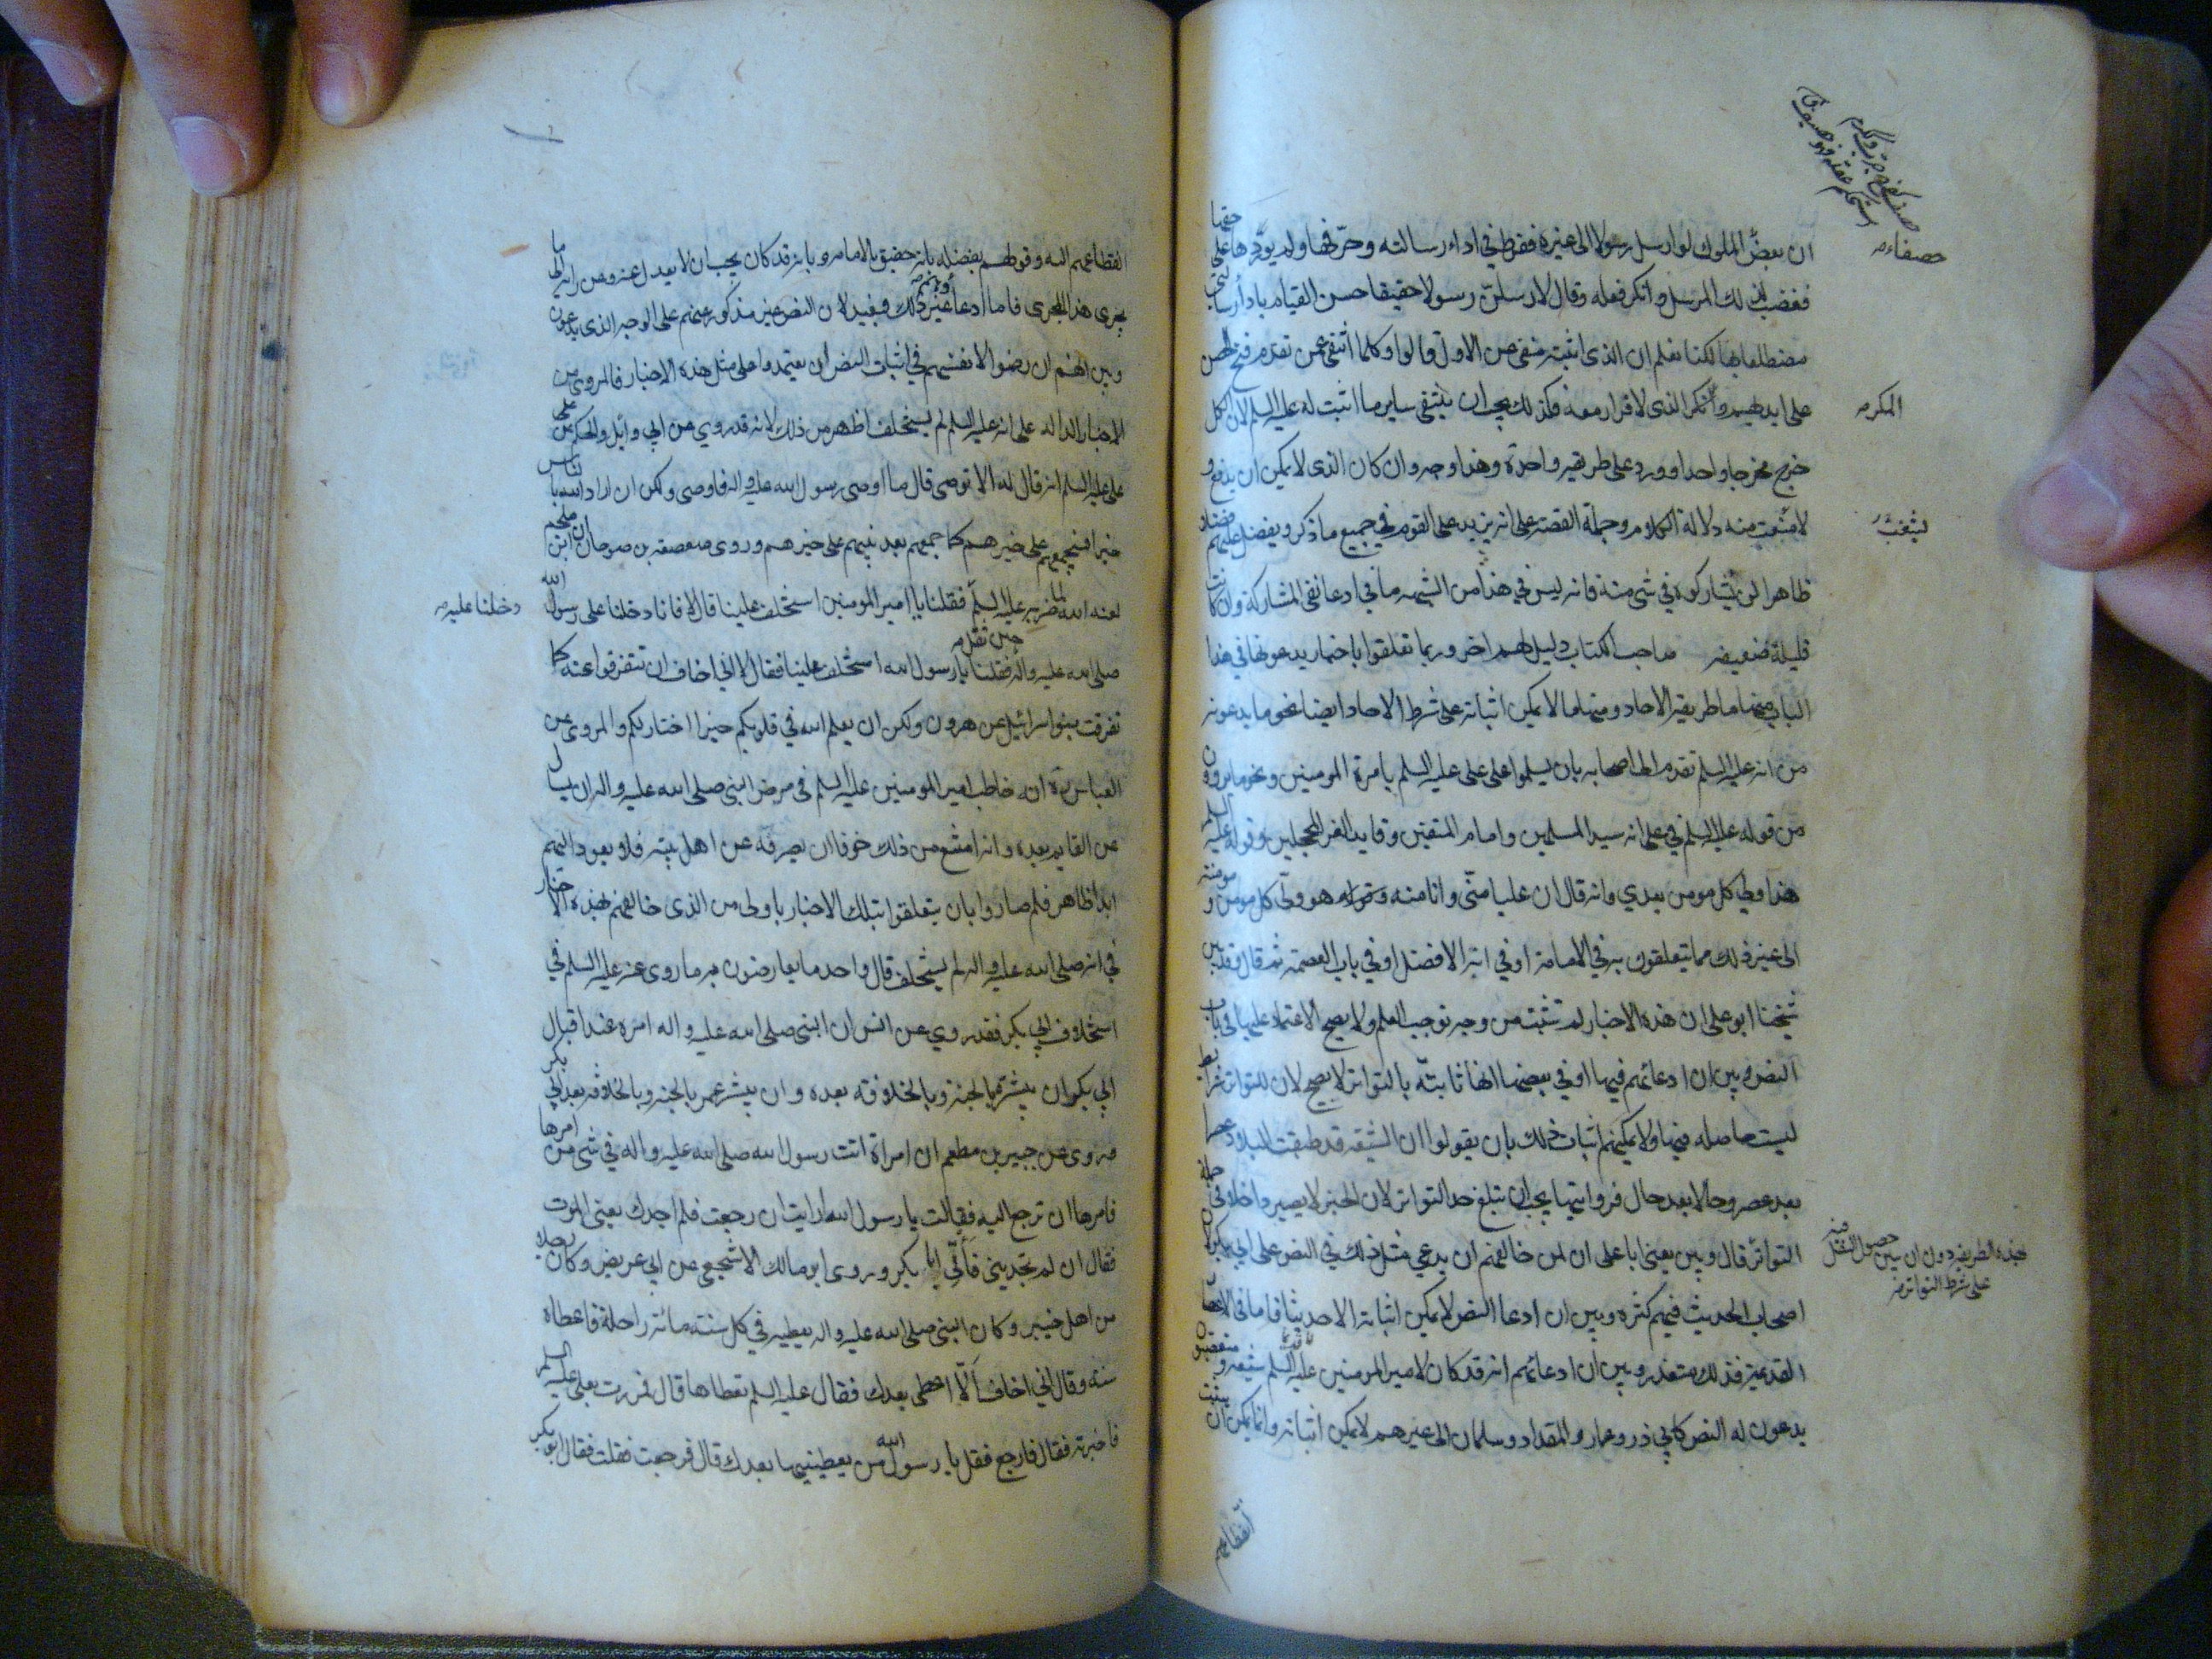 ان بعض الملوك لو ارسل رسولا الى غيره ففرط في اداء رسالته وحرّفها ولم يؤدها على حقها
فغضب لذلك المرسل وانكر فعله وقال لارسلنّ رسولا حقيقا حسن القيام باداء رسالتي
مضطلعا بها لكنا نعلم ان الذي اثبته منفي عن الاول قالوا وكلما انتفى عمن تقدم فتح الحصن
على ايديهم وانكر الذي لا فرار معه فكذلك يجب ان ينتفي ساير ما اثبت له عليه السلم لان الكل
خرج مخرجا واحدا وورد على طريقة واحدة وهذا وجه وان كان الذي لا يمكن ان يدفع و
لا منه دلالة الكلام وجملة القصة على انه يزيد على القوم في جميع ما ذكر ويفضل عليهم فضلا
ظاهرا لو شاركوه في شي منه فانه ليس في هذا من الشبهة ما في ادعا نفى المشاركة وان كانت
قليلة ضعيفة صاحب الكتاب دليل لهم اخر وربما تعلقوا باخبار يدعونها في هذا
الباب منها ما طريقه الاحاد ومنها ما لا يمكن اثباته على شرط الاحاد ايضا نحو ما يدعونه
من انه عليه السلم تقدم الى اصحابه بان يسلموا على علي عليه السلم بامرة المومنين ونحو ما يروون
من قوله عليه السلم في علي انه سيد المسلمين وامام المتقين وقايد الغر المحجلين وقوله عليه السلم
هذا ولي كل مومن بعدي وانه قال ان عليا منّي وانا منه وهو وليّ كل مومن و مومنة
الى غير ذلك مما يتعلقون به في الامامة او في انه الافضل او في باب العصمة ثم قال وقد بين
شيخنا ابو علي ان هذه الاخبار لم تثبت من وجه توجب العلم ولا يصح الاعتماد عليها في باب
النص وبين ان ادعائهم فيها او في بعضها انها ثابتة بالتواتر لا يصح لان للتواتر شرايط
ليست حاصله فيها ولا يمكنهم اثبات ذلك بان يقولوا ان الشيعة قد طبقت البلاد عصرا
بعد عصر وحالا بعد حال فروايتها يجب ان تبلغ حد التواتر لان الخبر لا يصير داخلا في جملة
التواتر قال وبين يعني ابا علي ان لمن خالفهم ان يدعي مثل ذلك في النص على ابي بكر لان
اصحاب الحديث فيهم كثره وبين ان ادعا النص لا يمكن اثباته الا حديثا فاما في الاعصار
القديمة فذلك متعذر وبين ان ادعائهم انه قد كان لامير المومنين عليه السلم شيعة و متعصبون
يدعون له النص كابي ذر وعمار والمقداد وسلمان الى غيرهم لا يمكن اثباته وانما يمكن ان يثبت
حصفاءه
المكرمه
بهذه الطريقة دون ان يبين حصول النقل فيه
على شرط التواتر
انقطاعهم
انقطاعهم اليه وقولهم بفضله بانه حقيق بالامامة وبانه قد كان يجب ان لا يعدل عنه ومن راى ما
يجري هذا المجرى فاما ادعا غير ذلك فبعيد لان النص غير مذكور عنهم على الوجه الذي يدعون
وبين انهم ان رضوا لانفسهم في اثبات النص ان يعتمدوا على مثل هذه الاخبار فالمروي من
الاخبار الدالة على انه عليه السلم لم يستخلف اظهر من ذلك لانه قد روي عن ابي وائل والحكم عن
علي عليه السلم انه قال له الا توصي قال ما اوصى رسول الله عليه واله فاوصي ولكن ان اراد الله بالناس
خيرا فسيجمعهم على خيرهم كما جمعهم بعد نبيهم على خيرهم وروى صعصعة بن صوحان ان ابن ملجم
لعنه الله لما ضربه عليه السلم فقلنا يا امير المومنين استخلف علينا قال لا فانا دخلنا على رسول الله
صلى الله عليه واله فقلنا يا رسول الله استخلف علينا فقال لا اني اخاف ان تتفرقوا عنه كما
تفرقت بنو اسرائيل عن هرون ولكن ان يعلم الله في قلوبكم خيرا اختار لكم والمروي عن
العباس انه خاطب امير المومنين عليه السلم في مرض النبي صلى الله عليه واله ان يسال
عن القايم بعده وانه امتنع من ذلك خوفا ان يصرفه عن اهل بيته فلا يعود اليهم
ابدا ظاهر فلم صاروا بان يتعلقوا بتلك الاخبار باولى من الذي خالفهم بهذه الاخبار
في انه صلى الله عليه واله لم يستخلف قال واحد ما يعارضون به ما روى عنه عليه السلم في
استخلاف ابي بكر فقد روي عن انس ان النبي صلى الله عليه واله امره عند اقبال
ابي بكر ان يبشره بالجنة وبالخلافة بعده وان يبشر عمر بالجنة وبالخلافة بعد ابي بكر
وروى عن جبير بن مطعم ان امراة اتت رسول الله صلى الله عليه واله في شي من امرها
فامرها ان ترجع اليه فقالت يا رسول الله ارايت ان رجعت فلم اجدك يعني الموت
فقال ان لم تجديني فأتي ابا بكر وروى ابو مالك الاشجعي عن ابي عريض وكان رجلا
من اهل خيبر وكان النبي صلى الله عليه واله يعطيه في كل سنة مائة راحلة فاعطاه
سنة وقال اني اخاف ألّا اعطى بعدك فقال عليه السلم تعطاها قال فمررت بعلي عليه السلم
فاخبرته فقال فارجع فقل يا رسول الله من يعطينيها بعدك قال فرجعت فقلت فقال ابو بكر
حين تقدم
دخلنا عليه